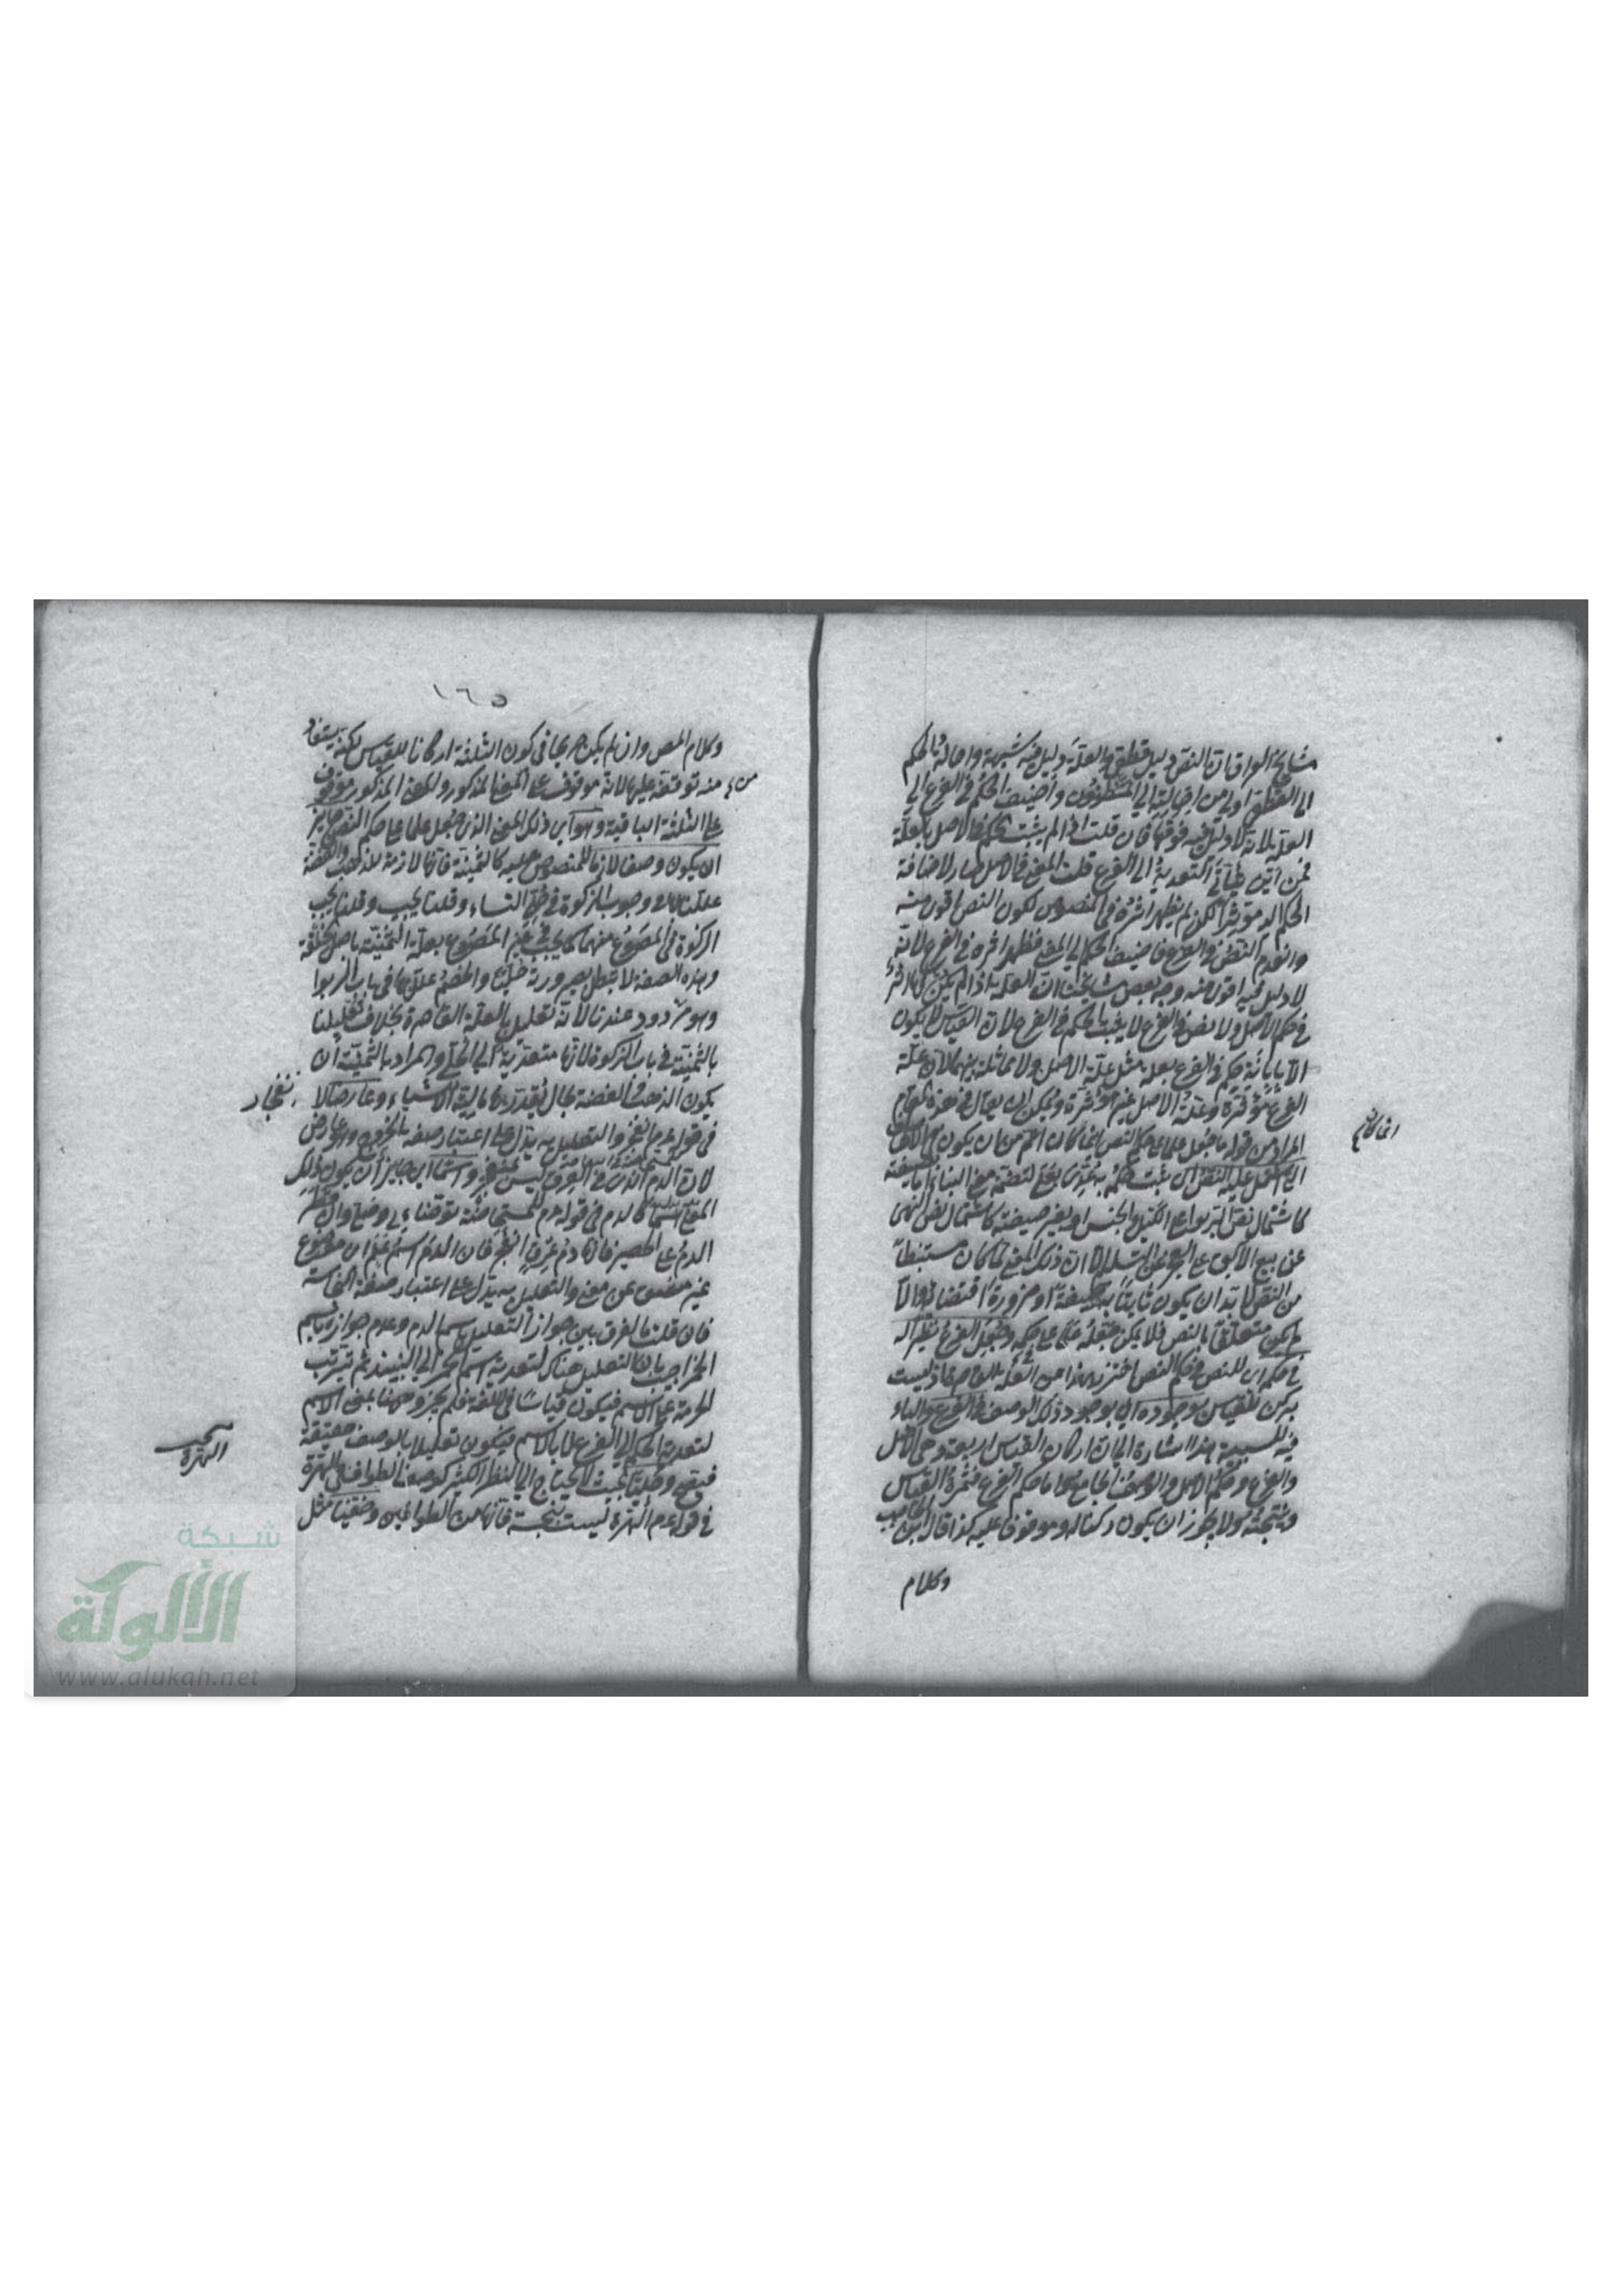 مشايخ العراق ان النص دليل قطعي والعلة دليل فيه شبهة واحالة الحكم
الى القطعي اولى من احالته الى المظنون واضيف الحكم في الفرع الى
العلة لانه لا دليل فيه فوقها فان قلت اذا لم يثبت الحكم في الاصل بالعلة
فمن اين يتأتى التعدية الى الفرع قلت المعنى في الاصل صار لاضافة
الحكم اليه مؤثرا لكن لم يظهر اثره في المنصوص لكون النص اقوى منه
وانعدم النص في الفرع فاضيف الحكم الى المعنى فظهر اثره في الفرع لانه
لا دليل فيه اقوى منه وجه بعض مشايخنا ان العلة اذا لم يكن لها اثر
في حكم الاصل ولا نص في الفرع لا يثبت الحكم في الفرع لان القياس لا يكون
الا بابانة حكم في الفرع بعلة مثل علة الاصل ولا مماثلة بينهما لان علة
الفرع مؤثرة وعلة الاصل غير مؤثرة ويمكن ان يقال في هذه المقام
المراد من قوله ما جعل علما على حكم النص
اشتمل عليه النص اى يثبت حكمه به
كاشتمال نص الربوا على الكيل والجنس او بغير صيغته كاشتمال نص النهى
عن بيع الآبق على العجز عن التسليم لان ذلك المعنى لما كان مستنبطا
من النص لا بد ان يكون ثابتا به صيغة او ضرورة اقتضائه والا
لم يكن متعلقا بالنص فلا يمكن جعله علما على حكمه وجعل الفرع نظيرا له
في حكمه اى للنص في حكم النص احترز بهذا من العلة القاصرة اذ ليست
بركن للقياس بوجوده اى بوجود ذلك الوصف في الفرع والباء
فيه للسببية هذا اشارة الى ان اركان القياس اربعة وهى الاصل
والفرع وحكم الاصل والوصف الجامع واما حكم الفرع فثمرة القياس
ونتيجته ولا يجوز ان يكون ركنا له وموقوفا عليه كذا قال ابن الحاجب
وكلام
١٦٥
وكلام المص وان لم يكن صريحا في كون الثلثة اركانا للقياس لكنه يستفاد
منه توقفه عليها لانه موقوف على المعنى المذكور والمعنى المذكور موقوف
على الثلثة الباقية وهو اى ذلك المعنى الذى جعل علما على حكم النص جائز
ان يكون وصفا لازما للمنصوص عليه كالثمنية فانها لازمة للذهب والفضة
عللنا بها وجوب الزكوة في حلى النساء وقلنا يجب
الزكوة في المصوغ منهما كما يجب في غير المصوغ بعلة الثمنية باصل الخلقة
وهذه الصفة لا تبطل بصيرورته حليا والخصم عللها في باب الربوا
وهو مردود عندنا لانه تعليل بالعلة القاصرة بخلاف تعليلنا
بالثمنية في باب الزكوة لانها متعدية الى الحلى والمراد بالثمنية ان
يكون الذهب والفضة بحال يقدر بهما مالية الاشياء وعارضا كالانفجار
في قوله فانها دم عرق انفجر والتعليل به يدل على اعتبار صفة الخروج وهو عارض
لان الدم الذى في العروق ليس بمنفجر واسما اى جايز ان يكون ذلك
المعنى اسما كالدم في قوله لمستحاضة توضئ وصلى وان قطر
الدم على الحصير فانها دم عرق انفجر فان الدم اسم علم اى موضوع
غير مشتق عن معنى والتعليل به يدل على اعتبار صفة النجاسة
فان قلت ما الفرق بين جواز التعليل باسم الدم وعدم جوازه باسم
الخمر اجيب بان التعليل هناك لتعدية اسم الخمر الى النبيذ ثم ترتب
الحرمة على الاسم فيكون قياسا في اللغة فلم يجز وههنا بمعنى الاسم
لتعدية الحكم الى الفرع لا بالاسم فيكون تعليلا بالوصف حقيقة
فيصح وجليا بحيث لا يحتاج الى النظر الكثير كوصف الطواف في الهرة
في قوله الهرة ليست بنجسة فانها من الطوافين وخفيا مثل
الهرة